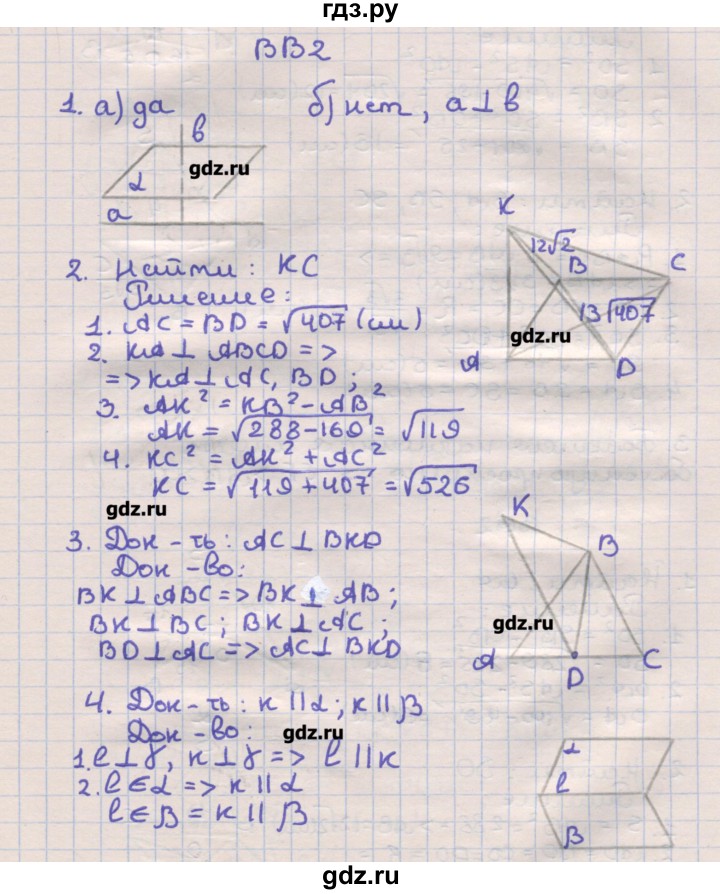 гдз.ру
ВВ2
1. а) да б) нет, a⊥b
b
gdz.ru
α
a
2. Найти: KC
Решение:
1. AC = BD = √407 (см)
2. KA ⊥ ABCD =>
=> KA ⊥ AC, BD;
3. AK² = KB² - AB²
AK = √288-169 = √119
4. KC² = AK² + AC²
KC = √119+407 = √526
K
12√2
B
C
13 √407
gdz.ru
A
D
gdz.ru
3. Док-ть: AC ⊥ BKD
Док-во:
BK ⊥ ABC => BK ⊥ AB;
BK ⊥ BC; BK ⊥ AC;
BD ⊥ AC => AC ⊥ BKD
K
B
gdz.ru
A
D
C
4. Док-ть: к || α; к || β
Док-во:
gdz.ru
1. l ⊥ γ, к ⊥ γ => l || к
2. l ∈ α => к || α
l ∈ β = к || β
α
l
β
gdz.ru